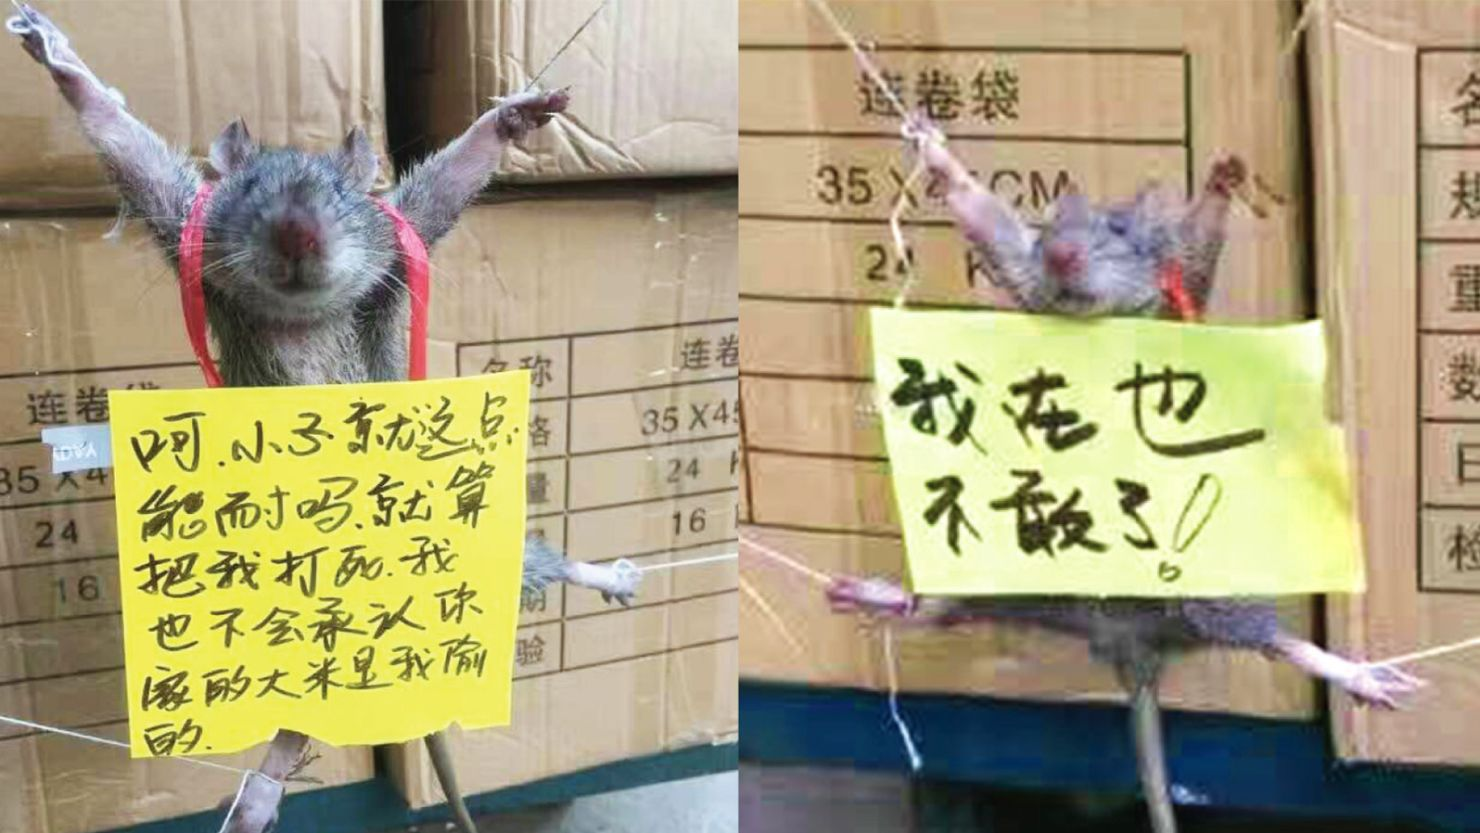 呵.小子就这点
能而寸吗.就算
把我打死.我
也不会承认你
家的大米是我偷
的.
连卷袋
35X4
24
16
名称
连卷
35X45
24
16
验
我在也
不敢了!
连卷袋
35X45CM
24 K
名
规
重
数
日
检